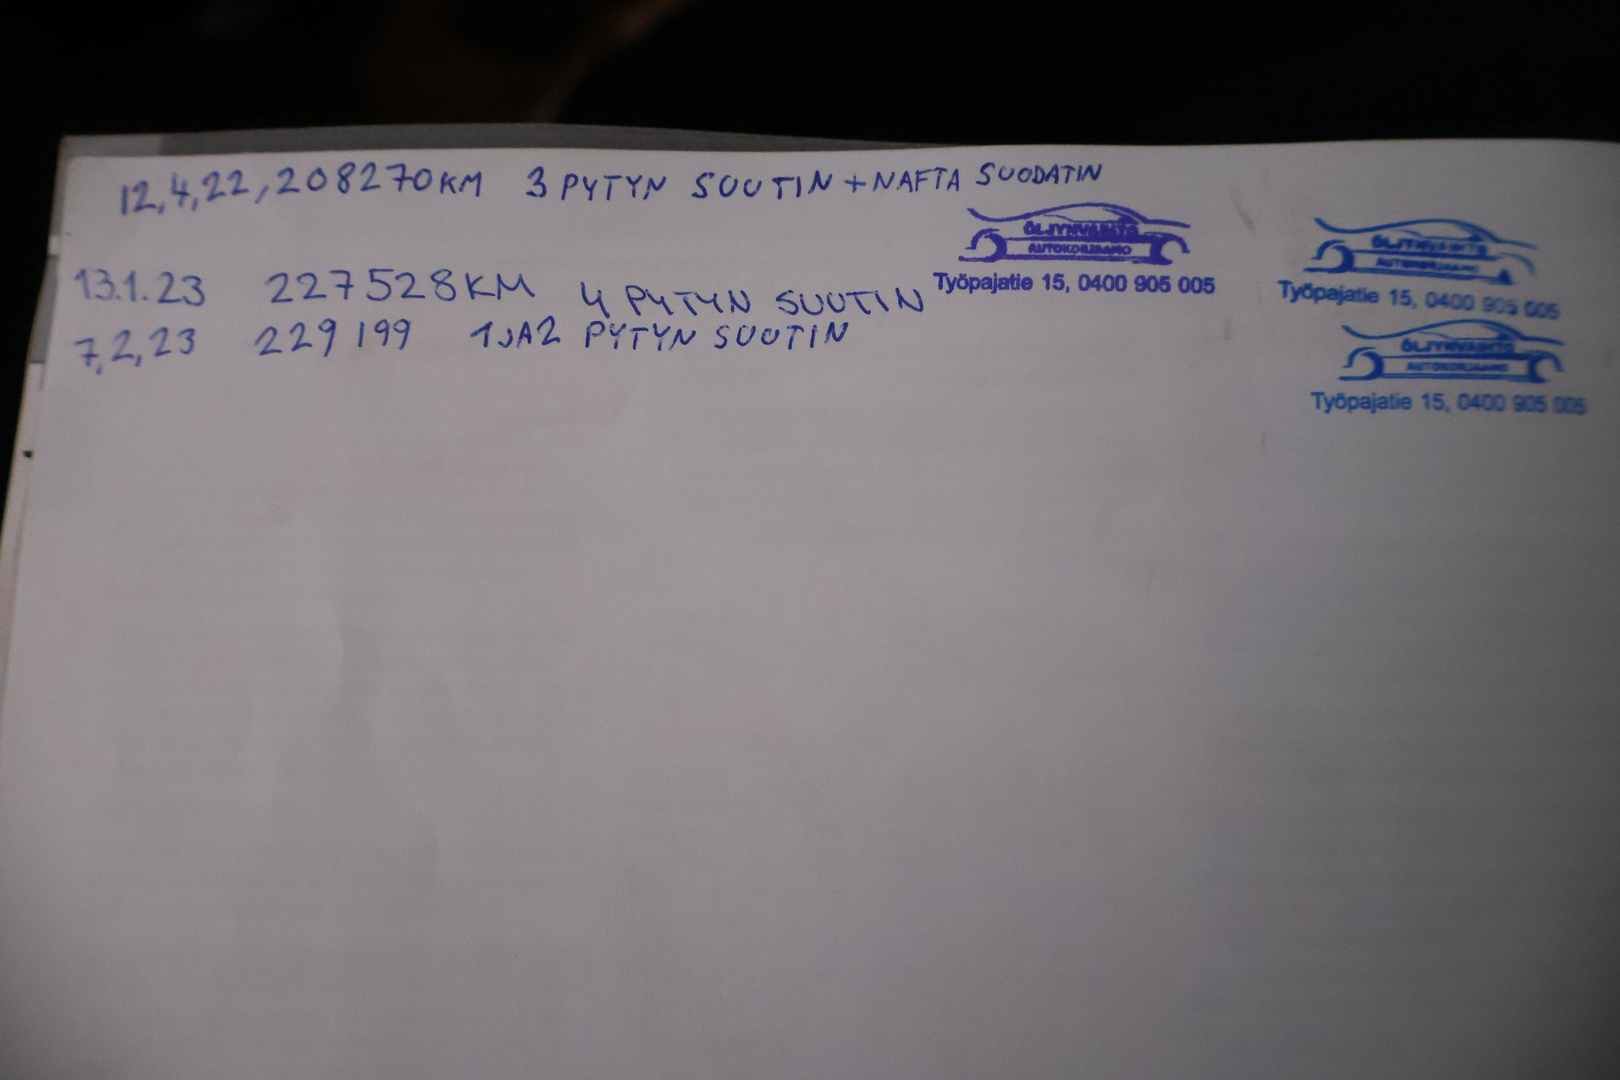 12,4,22, 208270KM 3 PYTYN SUUTIN + NAFTA SUODATIN
ÖLJYNVAIHTO
AUTOKORJAAMO
Työpajatie 15, 0400 905 005
13.1.23 227528KM 4 PYTYN SUUTIN
ÖLJYNVAIHTO
AUTOKORJAAMO
Työpajatie 15, 0400 905 005
7,2,23 229199 1JA2 PYTYN SUUTIN
ÖLJYNVAIHTO
AUTOKORJAAMO
Työpajatie 15, 0400 905 005